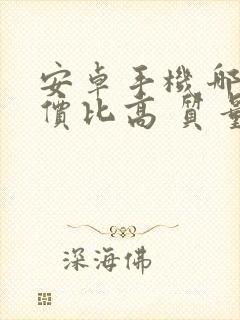 安卓手機哪
價比高質量
深海佛